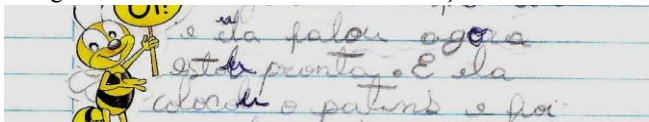 OI!
e ela falou agora
estou pronta. E ela
colocou o patins e foi